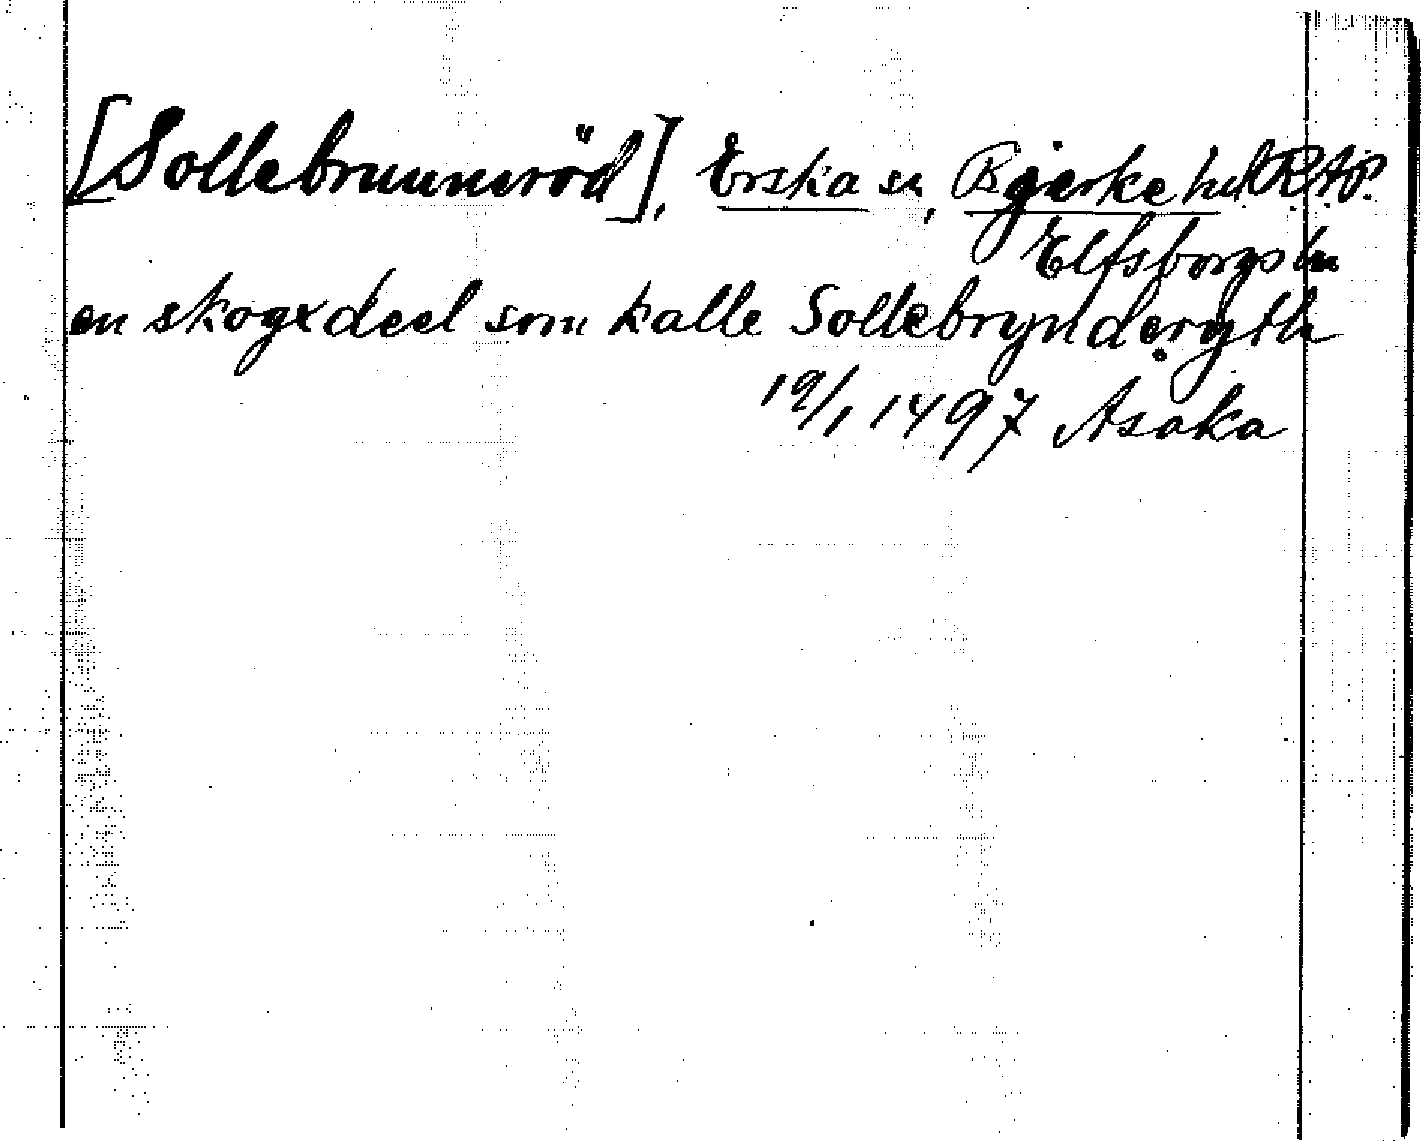 [Sollebrunnsröd], Erska sn, Bjerke hd R.A.P.
Elfsborgs län
en skogxdeel som kalle Sollebrynderydh
19/1 1497 Asaka